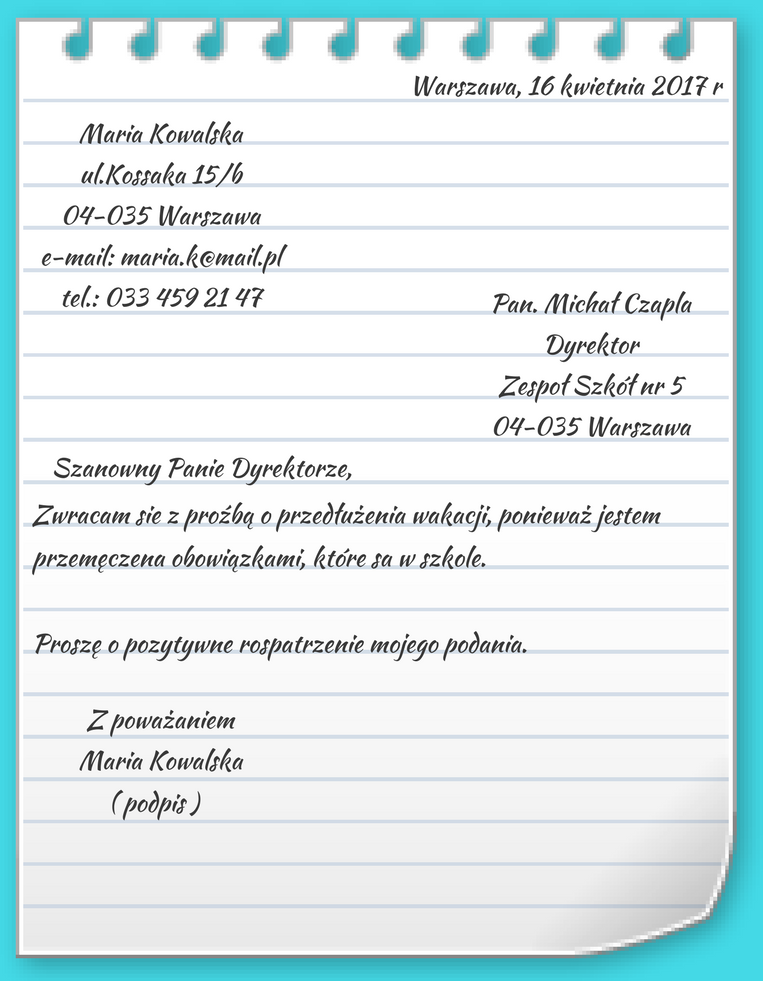 Warszawa, 16 kwietnia 2017 r
Maria Kowalska
ul.Kossaka 15/b
04-035 Warszawa
e-mail: maria.k@mail.pl
tel.: 033 459 21 47
Pan. Michał Czapla
Dyrektor
Zespoł Szkół nr 5
04-035 Warszawa
Szanowny Panie Dyrektorze,
Zwracam sie z proźbą o przedłużenia wakacji, ponieważ jestem
przemęczena obowiązkami, które sa w szkole.
Proszę o pozytywne rospatrzenie mojego podania.
Z poważaniem
Maria Kowalska
( podpis )